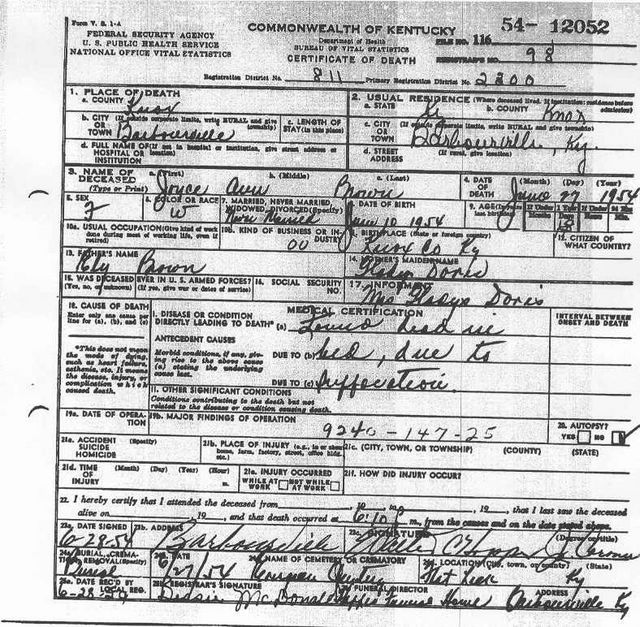 Form V. S. 1-A
FEDERAL SECURITY AGENCY
U. S. PUBLIC HEALTH SERVICE
NATIONAL OFFICE VITAL STATISTICS
COMMONWEALTH OF KENTUCKY
Department of Health
BUREAU OF VITAL STATISTICS
CERTIFICATE OF DEATH
54- 12052
FILE NO. 116
REGISTRAR'S NO. 98
Registration District No. 811 Primary Registration District No. 2300
1. PLACE OF DEATH
a. COUNTY Knox
2. USUAL RESIDENCE (Where deceased lived. If institution: residence before admission)
a. STATE Ky b. COUNTY Knox
b. CITY (If outside corporate limits, write RURAL and give township)
OR TOWN Barbourville
c. LENGTH OF STAY (in this place)
c. CITY (If outside corporate limits, write RURAL and give township)
OR TOWN Barbourville, Ky.
d. FULL NAME OF (If not in hospital or institution, give street address or location)
HOSPITAL OR INSTITUTION
d. STREET ADDRESS (If rural, give location)
3. NAME OF DECEASED (Type or Print)
a. (First) b. (Middle) c. (Last)
Joyce Ann Brown
4. DATE OF DEATH (Month) (Day) (Year)
June 27 1954
5. SEX F
6. COLOR OR RACE W
7. MARRIED, NEVER MARRIED, WIDOWED, DIVORCED (Specify)
Never Married
8. DATE OF BIRTH
June 10 1954
9. AGE (In years last birthday)
10a. USUAL OCCUPATION (Give kind of work done during most of working life, even if retired)
10b. KIND OF BUSINESS OR INDUSTRY
00
11. BIRTHPLACE (State or foreign country)
Knox Co Ky
12. CITIZEN OF WHAT COUNTRY?
13. FATHER'S NAME
Brown
14. MOTHER'S MAIDEN NAME
Gladys Doris
15. WAS DECEASED EVER IN U. S. ARMED FORCES?
(Yes, no, or unknown) (If yes, give war or dates of service)
16. SOCIAL SECURITY NO.
17. INFORMANT
Mrs Gladys Doris
18. CAUSE OF DEATH
Enter only one cause per line for (a), (b), and (c)
MEDICAL CERTIFICATION
INTERVAL BETWEEN ONSET AND DEATH
I. DISEASE OR CONDITION
DIRECTLY LEADING TO DEATH* (a) Found dead in
ANTECEDENT CAUSES
*This does not mean the mode of dying, such as heart failure, asthenia, etc. It means the disease, injury, or complication which caused death.
Morbid conditions, if any, giving rise to the above cause (a) stating the underlying cause last.
DUE TO (b) bed, due to
DUE TO (c) suffocation
II. OTHER SIGNIFICANT CONDITIONS
Conditions contributing to the death but not related to the disease or condition causing death.
19a. DATE OF OPERATION
19b. MAJOR FINDINGS OF OPERATION
9240-147-25
20. AUTOPSY?
YES NO
21a. ACCIDENT SUICIDE HOMICIDE (Specify)
21b. PLACE OF INJURY (e.g., in or about home, farm, factory, street, office bldg., etc.)
21c. (CITY, TOWN, OR TOWNSHIP) (COUNTY) (STATE)
21d. TIME OF INJURY (Month) (Day) (Year) (Hour) m.
21e. INJURY OCCURRED
WHILE AT WORK NOT WHILE AT WORK
21f. HOW DID INJURY OCCUR?
22. I hereby certify that I attended the deceased from , 19 , to , 19 , that I last saw the deceased
alive on , 19 , and that death occurred at m., from the causes and on the date stated above.
23a. DATE SIGNED
6-28-54
23b. ADDRESS
Barbourville
23c. SIGNATURE (Degree or title)
Coroner
24a. BURIAL, CREMATION, REMOVAL (Specify)
Burial
24b. DATE
6/27/54
24c. NAME OF CEMETERY OR CREMATORY
24d. LOCATION (City, town, or county) (State)
Flat Lick Ky
25a. DATE REC'D BY LOCAL REG.
6-28-54
25b. REGISTRAR'S SIGNATURE
McDonald
FUNERAL DIRECTOR
Funeral Home
ADDRESS
Barbourville Ky